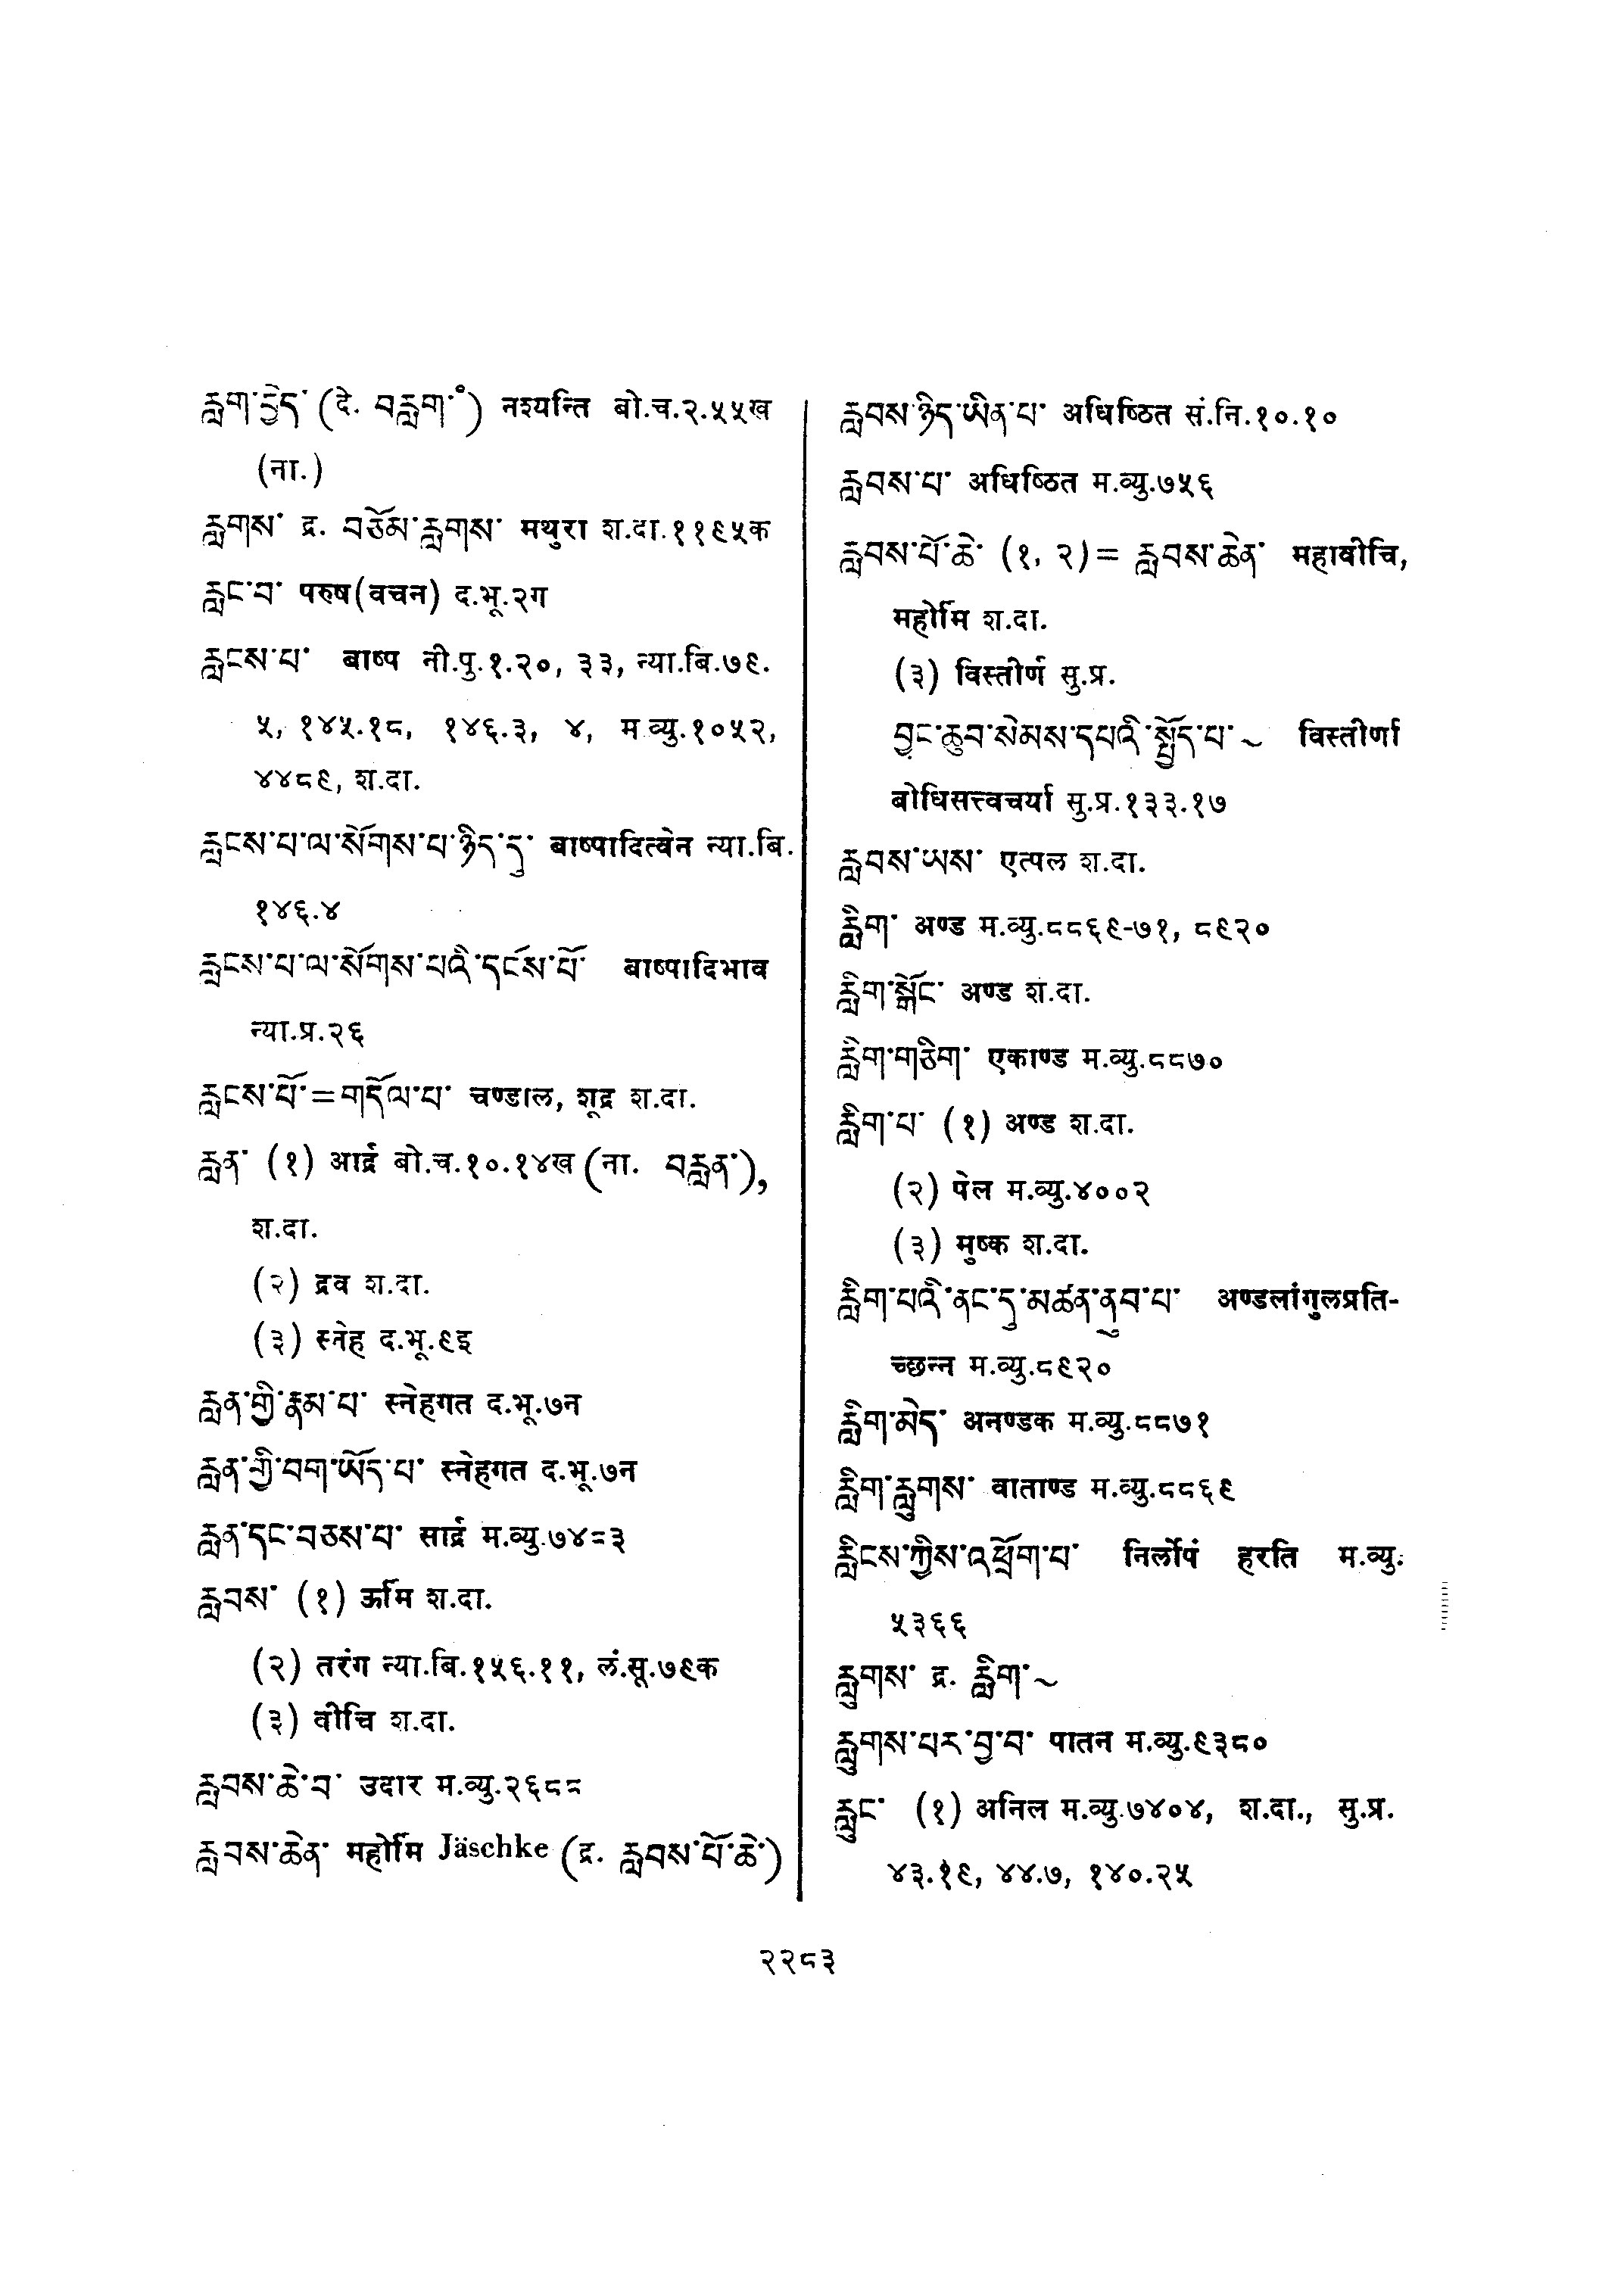 རླག་བྱེད་ (दे. བརླག་°) नश्यन्ति बो.च.२.५५ख
(ना.)
རླགས་ द्र. བཅོམ་རླགས་ मथुरा श.दा.११९५क
རླང་བ་ परुष(वचन) द.भू.२ग
རླངས་པ་ बाष्प नी.पु.१.२०, ३३, न्या.बि.७९.
५, १४५.१८, १४६.३, ४, म.व्यु.१०५२,
४४८९, श.दा.
རླངས་པ་ལ་སོགས་པ་ཉིད་དུ་ बाष्पादित्वेन न्या.बि.
१४६.४
རླངས་པ་ལ་སོགས་པའི་དངོས་པོ་ बाष्पादिभाव
न्या.प्र.२६
རླངས་པོ་=གདོལ་པ་ चण्डाल, शूद्र श.दा.
རླན་ (१) आर्द्र बो.च.१०.१४ख (ना. བརླན་),
श.दा.
(२) द्रव श.दा.
(३) स्नेह द.भू.९इ
རླན་གྱི་རྣམ་པ་ स्नेहगत द.भू.७न
རླན་གྱི་བག་ཡོད་པ་ स्नेहगत द.भू.७न
རླན་དང་བཅས་པ་ सार्द्र म.व्यु.७४=३
རླབས་ (१) ऊर्मि श.दा.
(२) तरंग न्या.बि.१५६.११, लं.सू.७९क
(३) वीचि श.दा.
རླབས་ཆེ་བ་ उदार म.व्यु.२६८८
རླབས་ཆེན་ महोर्मि Jäschke (द्र. རླབས་པོ་ཆེ་)
རླབས་ཉིད་ཡིན་པ་ अधिष्ठित सं.नि.१०.१०
རླབས་པ་ अधिष्ठित म.व्यु.७५६
རླབས་པོ་ཆེ་ (१, २)= རླབས་ཆེན་ महावीचि,
महोर्मि श.दा.
(३) विस्तीर्ण सु.प्र.
བྱང་ཆུབ་སེམས་དཔའི་སྤྱོད་པ་ ~ विस्तीर्णा
बोधिसत्त्वचर्या सु.प्र.१३३.१७
རླབས་ཡས་ एत्पल श.दा.
རླིག་ अण्ड म.व्यु.८८६९-७१, ८९२०
རླིག་སྒོང་ अण्ड श.दा.
རླིག་གཅིག་ एकाण्ड म.व्यु.८८७०
རླིག་པ་ (१) अण्ड श.दा.
(२) पेल म.व्यु.४००२
(३) मुष्क श.दा.
རླིག་པའི་ནང་དུ་མཚན་ནུབ་པ་ अण्डलांगुलप्रति-
च्छन्न म.व्यु.८९२०
རླིག་མེད་ अनण्डक म.व्यु.८८७१
རླིག་རླུགས་ वाताण्ड म.व्यु.८८६९
རླིངས་ཀྱིས་འཕྲོག་པ་ निर्लोपं हरति म.व्यु.
५३६६
རླུགས་ द्र. རླིག་~
རླུགས་པར་བྱ་བ་ पातन म.व्यु.९३८०
རླུང་ (१) अनिल म.व्यु.७४०४, श.दा., सु.प्र.
४३.१९, ४४.७, १४०.२५
२२८३